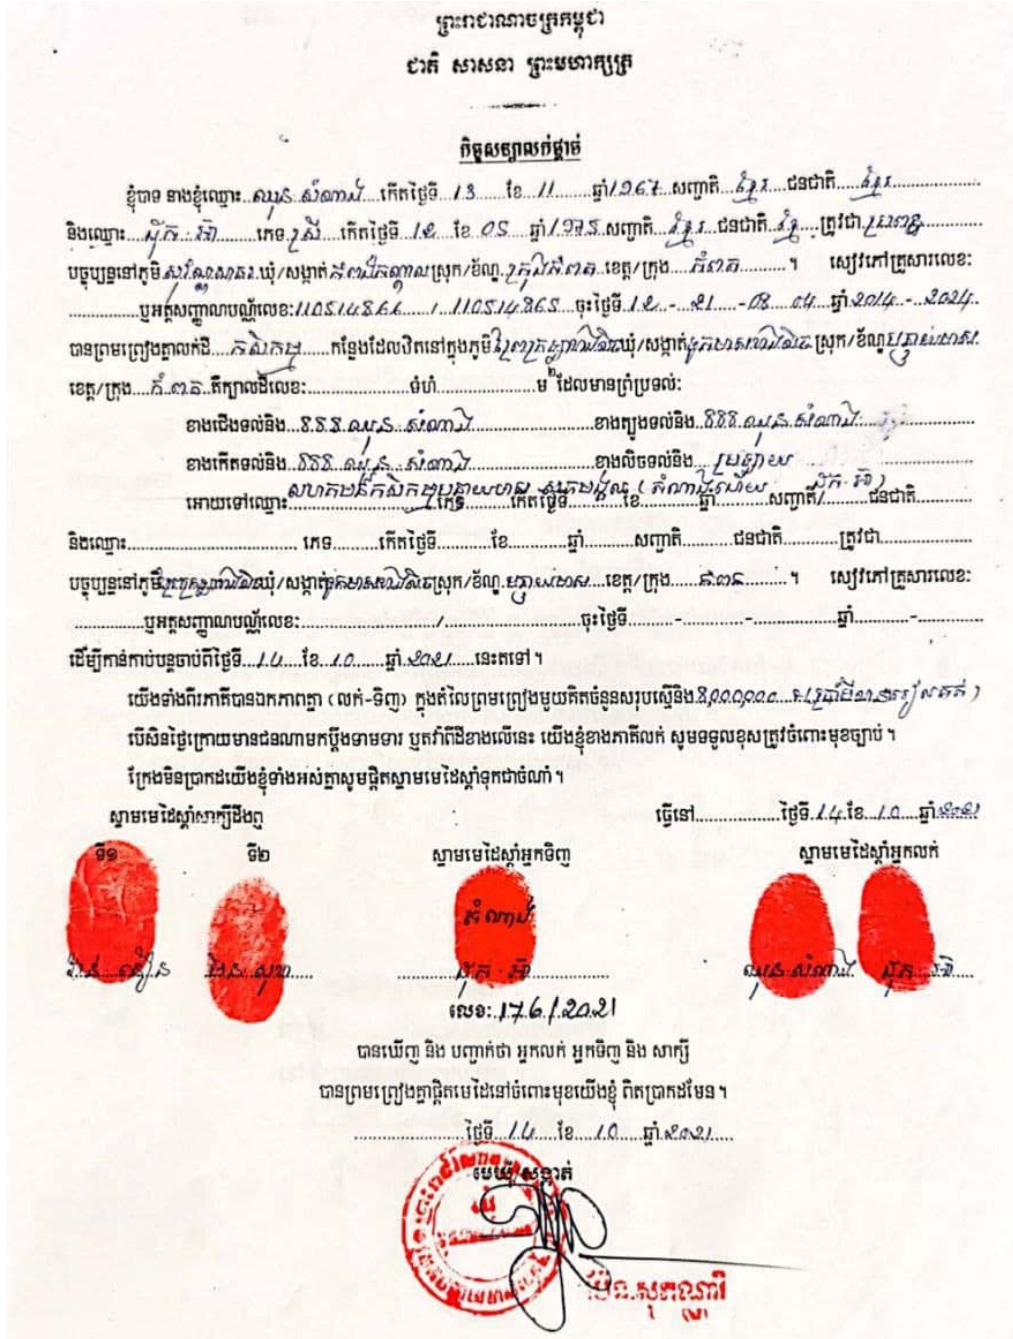 ព្រះរាជាណាចក្រកម្ពុជា
ជាតិ សាសនា ព្រះមហាក្សត្រ
កិច្ចសន្យាលក់ផ្តាច់
ខ្ញុំបាទ នាងខ្ញុំឈ្មោះ ឈុន សំណាង កើតថ្ងៃទី 13 ខែ 11 ឆ្នាំ 1967 សញ្ជាតិ ខ្មែរ ជនជាតិ ខ្មែរ
និងឈ្មោះ ភេទ ស្រី កើតថ្ងៃទី 12 ខែ 05 ឆ្នាំ 1975 សញ្ជាតិ ខ្មែរ ជនជាតិ ខ្មែរ ត្រូវជា ប្រពន្ធ
បច្ចុប្បន្ននៅភូមិ ឃុំ/សង្កាត់ កំពង់កណ្តាល ស្រុក/ខ័ណ្ឌ ក្រុងកំពត ខេត្ត/ក្រុង កំពត ។ សៀវភៅគ្រួសារលេខ:
ឬអត្តសញ្ញាណបណ្ណ័លេខ: 110514866 / 110514865 ចុះថ្ងៃទី 12 - 21 - 08 04 ឆ្នាំ 2014 - 2024
បានព្រមព្រៀងគ្នាលក់ដី កសិកម្ម កន្លែងដែលឋិតនៅក្នុងភូមិ ឃុំ/សង្កាត់ ស្រុក/ខ័ណ្ឌ បន្ទាយមាស
ខេត្ត/ក្រុង កំពត គីក្បាលដីលេខ: ទំហំ ម២ ដែលមានព្រំប្រទល់:
ខាងជើងទល់និង ឈុន សំណាង ខាងត្បូងទល់និង ឈុន សំណាង
ខាងកើតទល់និង ឈុន សំណាង ខាងលិចទល់និង ប្រឡាយ
អោយទៅឈ្មោះ សហគមន៍កសិកម្មបន្ទាយមាស ភេទ កើតថ្ងៃទី ខែ ឆ្នាំ សញ្ជាតិ/ ជនជាតិ
និងឈ្មោះ ភេទ កើតថ្ងៃទី ខែ ឆ្នាំ សញ្ជាតិ ជនជាតិ ត្រូវជា
បច្ចុប្បន្ននៅភូមិ ឃុំ/សង្កាត់ ស្រុក/ខ័ណ្ឌ បន្ទាយមាស ខេត្ត/ក្រុង កំពត ។ សៀវភៅគ្រួសារលេខ:
ឬអត្តសញ្ញាណបណ្ណ័លេខ: / ចុះថ្ងៃទី - - ឆ្នាំ -
ដើម្បីកាន់កាប់បន្តចាប់ពីថ្ងៃទី 14 ខែ 10 ឆ្នាំ 2021 នេះតទៅ។
យើងទាំងពីរភាគីបានឯកភាពគ្នា (លក់-ទិញ) ក្នុងតំលៃព្រមព្រៀងមួយគិតចំនួនសរុបស្មើនិង 8,000,000
បើសិនថ្ងៃក្រោយមានជនណាមកប្តឹងទាមទារ ឬតវ៉ាពីដីខាងលើនេះ យើងខ្ញុំខាងភាគីលក់ សូមទទួលខុសត្រូវចំពោះមុខច្បាប់ ។
ក្រែងមិនប្រាកដយើងខ្ញុំទាំងអស់គ្នាសូមផ្តិតស្នាមមេដៃស្តាំទុកជាចំណាំ។
ធ្វើនៅ ថ្ងៃទី 14 ខែ 10 ឆ្នាំ 2021
ស្នាមមេដៃស្តាំសាក្សីដឹងឮ
ទី១ ទី២ ស្នាមមេដៃស្តាំអ្នកទិញ ស្នាមមេដៃស្តាំអ្នកលក់
តំណាង
ឈុន សំណាង
លេខ: 176/2021
បានឃើញ និង បញ្ជាក់ថា អ្នកលក់ អ្នកទិញ និង សាក្សី
បានព្រមព្រៀងគ្នាផ្តិតមេដៃនៅចំពោះមុខយើងខ្ញុំ ពិតប្រាកដមែន។
ថ្ងៃទី 14 ខែ 10 ឆ្នាំ 2021
មេឃុំ/សង្កាត់
ម៉ែន.សុភណ្ណារី